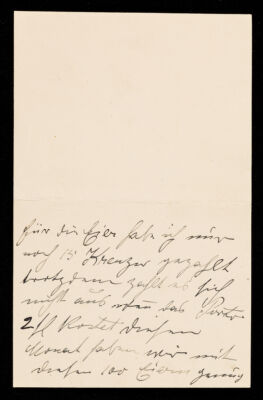 für die Eier habe ich nur
noch 15 Kreuzer gezahlt
trotzdem zahlt es sich
nicht aus wenn das Porto
2 fl kostet diesen
Monat haben wir mit
diesen 100 Eiern genug